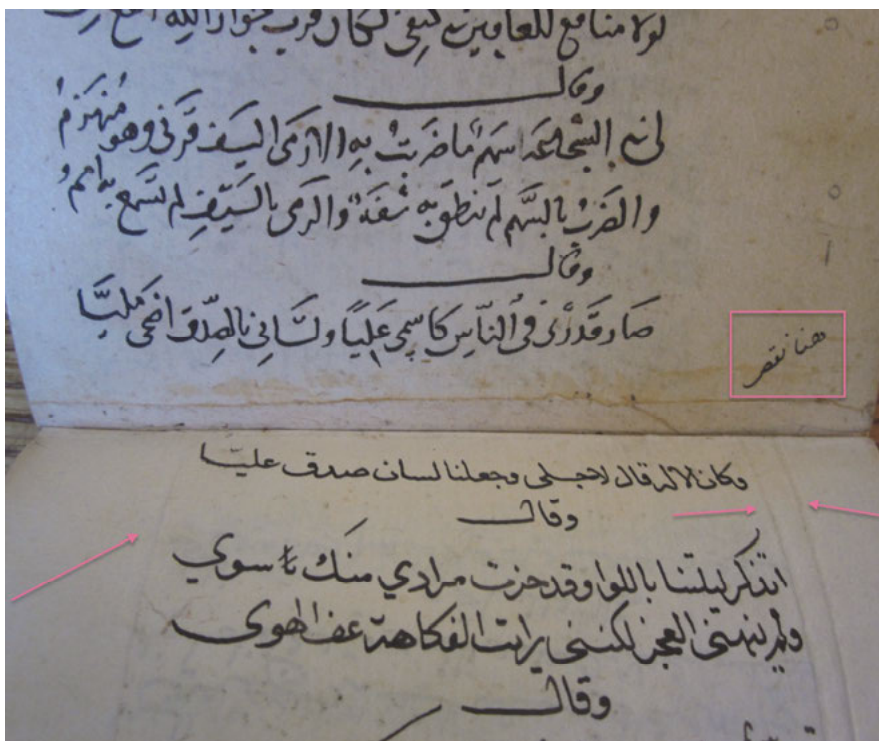 لولا منافع للعا كيف كان قرب بجوار الله
وقال
السجاعة اسهم ما ضربت به الا رمى السيف قرنى وهو منهزم
والضرب بالسهم لم تنطق به شفة والرمى بالسيف لم تسمع به امم
وقال
صار قدرى فى الناس كاسمى عليا ولسانى بالصدق اضحى مليا
هنا نقص
وكان الاله قال لاجلى وجعلنا لسان صدق عليا
وقال
اتذكر ليلتنا باللوا وقد حزت مرادي منك سوي
ولم ينهنى العجز لكننى رايت الفكاهة عف الهوى
وقال